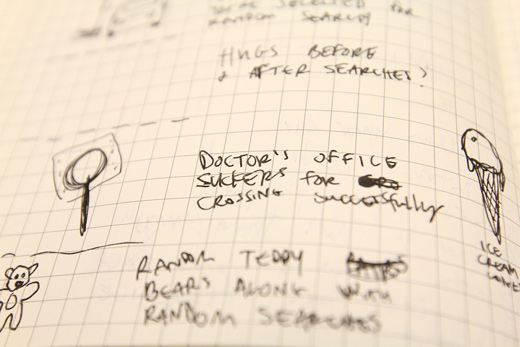 RANDOM SEARCH?
HUGS BEFORE
& AFTER SEARCHES?
DOCTOR'S OFFICE
SUCKERS FOR
CROSSING SUCCESSFULLY
ICE
CREAM
RANDOM TEDDY
BEARS ALONG WITH
RANDOM SEARCHES